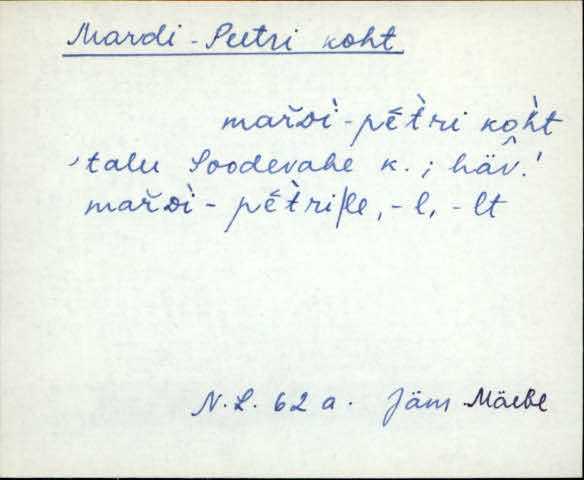 Mardi-Peetri koht
maři̬Dì-pētri koht
'talu Soodevahe k.; häv.'
mařDì-pētri/le, -l, -lt
N.L. 62 a. Jäm Mäebe